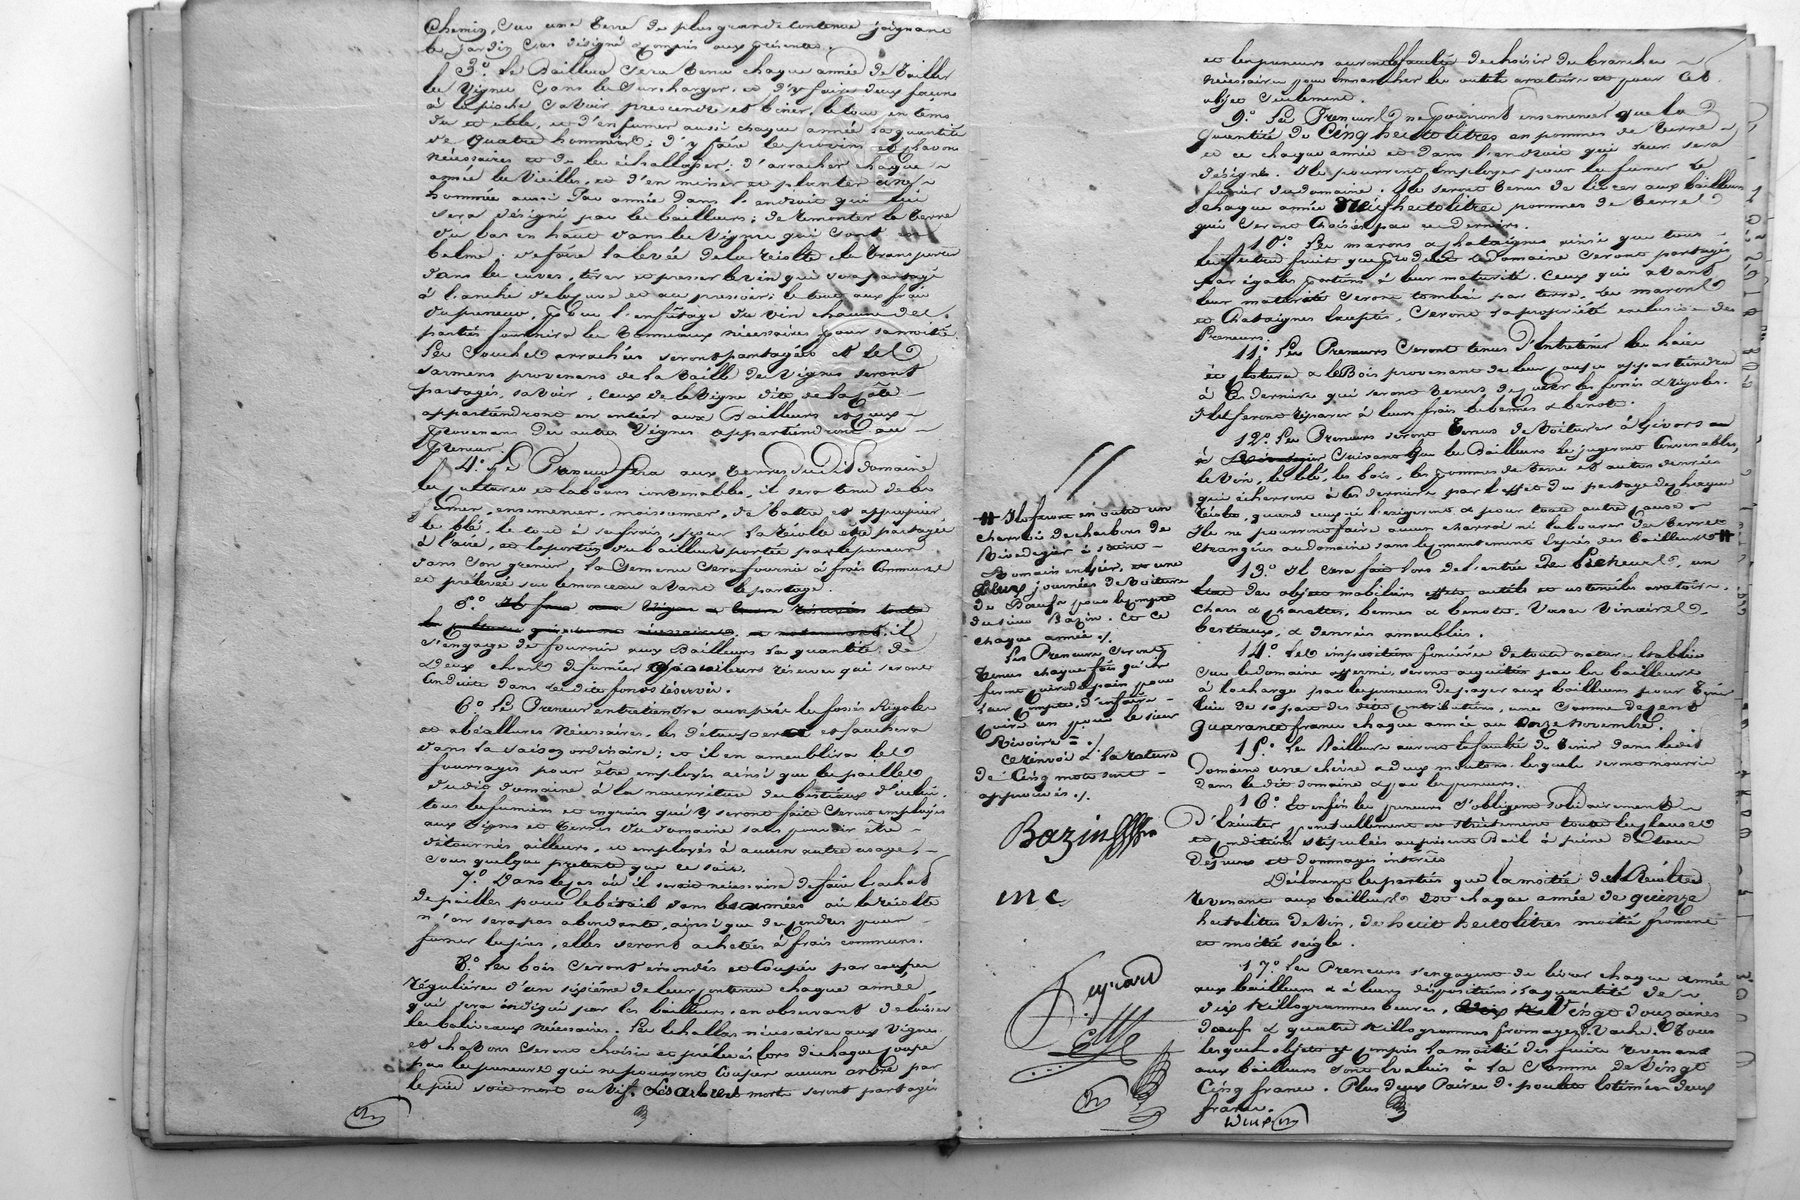 chemin, sur une terre de plus grande contenue joignant
le jardin cas désigné compris aux présentes.
3.° Le Bailleur sera tenu chaque année de tailler
les vignes sans les surcharger, et d'y faire deux façons
à la pioche savoir et biner, le tout en tems
dû et utile, et d'en fumer aussi chaque année la quantité
de quatre hommées; d'y faire les provins et chavons
nécessaires et de les échallasser; d'arracher chaque
année les vieilles, et d'en miner et planter cinq
hommées aussi par année dans l'endroit qui lui
sera désigné par les bailleurs; de remonter la terre
du bas en haut dans les vignes qui sont en
balme; de faire la levée de la récolte, la transporter
dans les cuves, tirer et presser le vin qui sera partagé
à l'anche de la cuve et au pressoir; le tout aux frais
du preneur, pour l'enfutage du vin chacune des
parties fournira les tonneaux nécessaires pour sa moitié.
Les souches arrachées seront partagées et les
sarmens provenans de la taille des vignes seront
partagés, savoir; ceux de la vigne dite de la côte
appartiendront en entier aux Bailleurs et ceux
provenans des autres vignes appartiendront au
preneur.
4.° Le Preneur fera aux terres dudit domaine
les cultures et labours convenables, il sera tenu de les
fumer, ensemencer, moissonner, de battre et approprier
le blé, le tout à ses frais, pour la récolte être partagée
à l'aire, et la portion du bailleur portée par le preneur
dans son grenier, la semence sera fournie à frais communs
et prélevée sur le monceau avant le partage.
5.° il
s'engage de fournir aux Bailleurs la quantité de
deux chars de fumier réserves qui seront
conduits dans lesdits fonds réservés.
6.° Le Preneur entretiendra aux prés les fossés rigoles
et abéallures nécessaires, les détaupera et fauchera
dans la saison ordinaire; et il en ameublira les
fourrages pour être employés ainsi que les pailles
dudit domaine à la nourriture des bestiaux d'icelui.
tous les fumiers et engrais qui y seront faits seront employés
aux vignes et terres du domaine sans pouvoir être
détournés ailleurs, et employés à aucun autre usage,
sous quelque prétexte que ce soit.
7.° Dans le cas où il seroit nécessaire de faire l'achat
de pailles pour le bétail dans les années où la récolte
n'en sera pas abondante, ainsi que des cendres pour
fumer les prés, elles seront achetées à frais communs.
8.° Les bois seront émondés et coupés par coupes
régulières d'un sixième de leur contenue chaque année,
qui sera indiqué par les bailleurs, en observant de laisser
les baliveaux nécessaires. Les échallas nécessaires aux vignes
et chavons seront choisis et prélevés lors de chaque coupe
par les preneurs qui ne pourront couper aucun arbre par
le pied soit mort ou vif. Les arbres morts seront partagés
et les preneurs auront la faculté de choisir des branches
nécessaires pour les outils aratoires et pour cet
objet seulement.
9.° Les Preneurs ne pourront ensemencer que la
quantité de cinq hectolitres en pommes de terre
et ce chaque année et dans l'endroit qui leur sera
désigné. Ils pourront employer pour les fumer le
fumier du domaine. Ils seront tenus de livrer aux bailleurs
chaque année neuf hectolitres pommes de terre
qui seront choisies par ces derniers.
10.° Les marons & chataignes ainsi que tous
les autres fruits que produit le domaine seront partagés
par égales portions à leur maturité. Ceux qui avant
leur maturité seront tombés par terre, les marons
et chataignes exceptés, seront la propriété exclusive des
Preneurs.
11.° Les Preneurs seront tenus d'entretenir les haies
et clotures & le Bois provenant de leur coupe appartiendra
à ces derniers qui seront tenus de curer les fossés & rigoles.
Ils feront réparer à leurs frais les bennes & benots.
12.° Les Preneurs seront tenus de voiturer à Givors ou
à suivant que les Bailleurs le jugeront convenable,
le vin, le blé, les bois, les pommes de terre et autres denrées
qui écherront à ces derniers par l'effet du partage de chaque
récolte, quand ceux-ci l'exigeront & pour toute autre cause
Ils ne pourront faire aucun charroi ni labourer des terres
étrangères au domaine sans le consentement exprès des Bailleurs #
13.° Il sera fait lors de l'entrée des Preneurs, un
état des objets mobiliers effets, outils et ustensiles aratoires
chars & charettes, bennes & benots, vases vinaires
bestiaux, & denrées ameublies.
14.° Les impositions foncières de toute nature établies
sur le domaine affermé, seront acquittées par les bailleurs
à la charge par les preneurs de payer aux bailleurs pour tenir
lieu de sa part des dites contributions, une somme de cent
quarante francs chaque année au onze novembre.
15.° Les Bailleurs auront la faculté de tenir dans ledit
domaine une chèvre & deux moutons lesquels seront nourris
dans le dit domaine & par les preneurs.
16.° Et enfin les preneurs s'obligent solidairement
d'exécuter ponctuellement et strictement toutes les clauses
et conditions stipulées au présent Bail à peine de tous
dépens et dommages intérêts
Déclarent les parties que la moitié des Récoltes
revenant aux bailleurs est chaque année de quinze
hectolitres de vin, de huit hectolitres moitié froment
et moitié seigle.
17.° Les Preneurs s'engagent de livrer chaque année
aux bailleurs & à leurs dispositions, la quantité de
dix killogrammes beurre, vingt douzaines
d'œufs & quatre killogrammes fromages de vache. Tous
lesquels objets y compris la moitié des fruits revenant
aux bailleurs sont évalués à la somme de vingt
cinq francs. Plus deux paires de poulets estimés deux
francs.
# Ils feront en outre un
charroi de charbons de
Rivedegier à saint
Romain en Gier, et une
deux journées de voiture
de Bœufs pour le compte
du sieur Bazin. Et ce
chaque année ./.
Les Preneurs seront
tenus chaque fois qu'ils
feront cuire du pain pour
leur compte, d'en faire
cuire un pour le sieur
Rivoire = ./.
Ce renvoi & la rature
de cinq mots sont
approuvés ./.
Bazin
mc
Peyrard